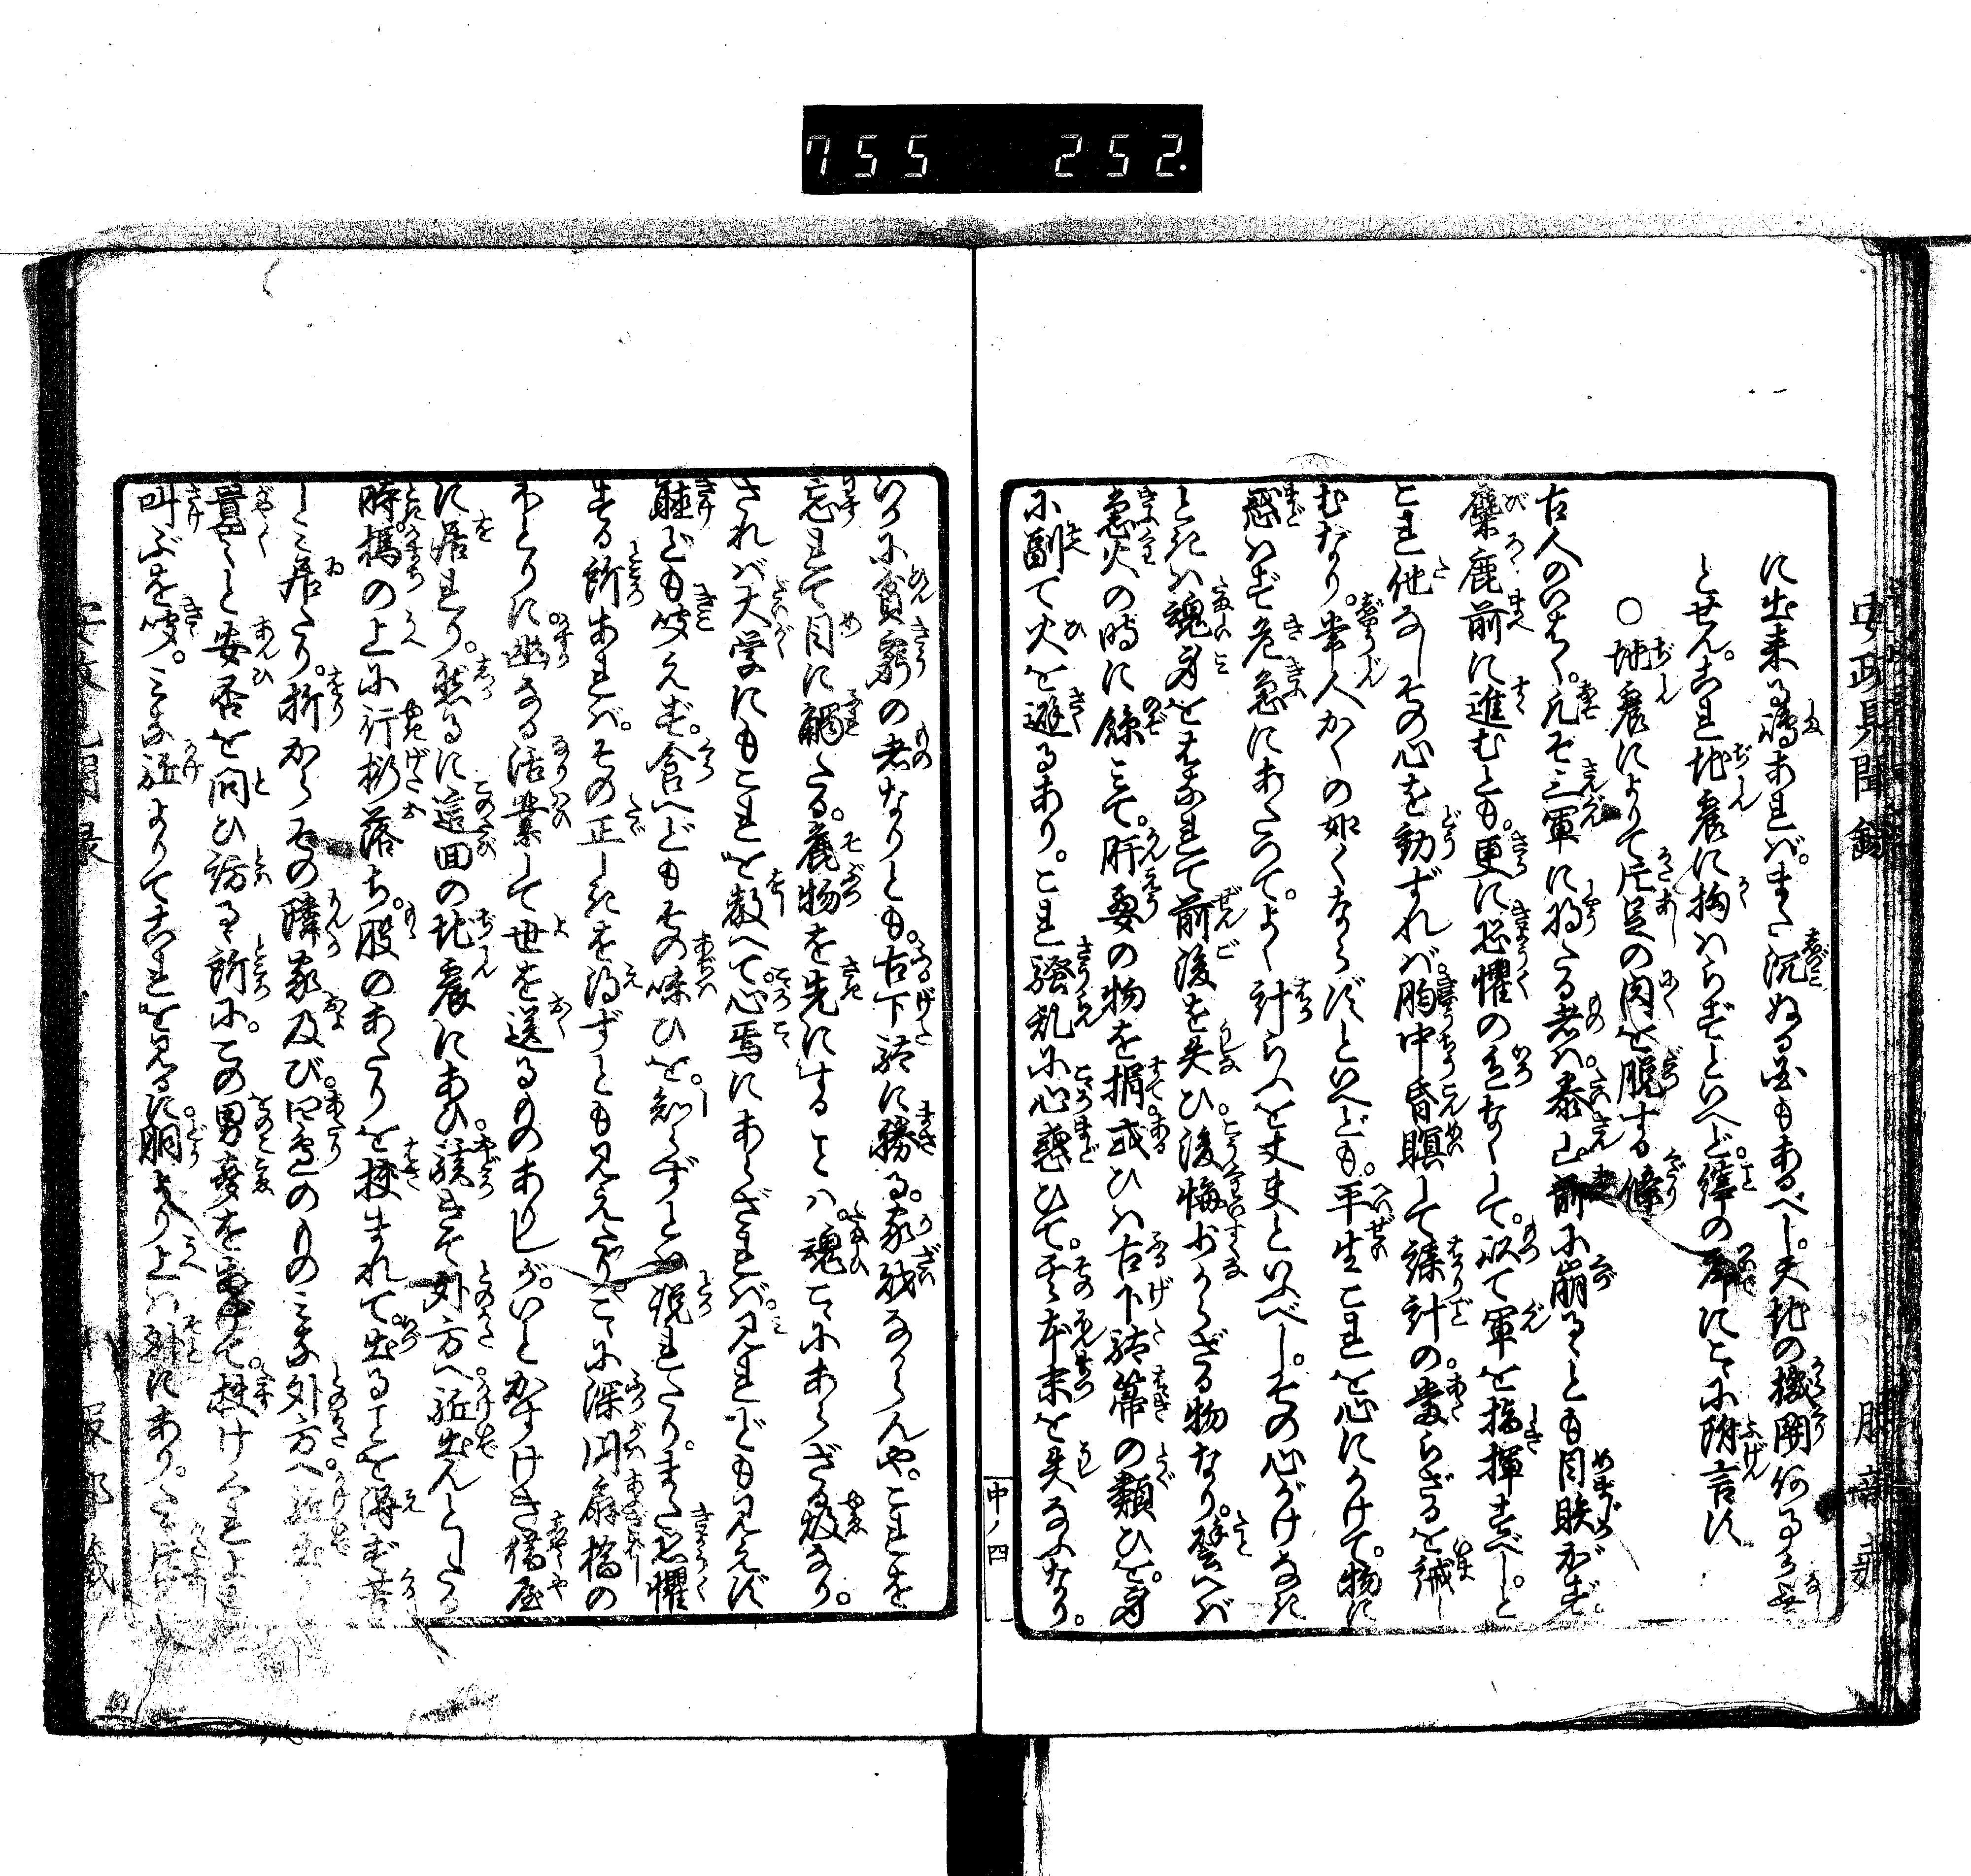 755 252.
安政見聞録
に出来る嶋あれば。また沉ぬる国もあるべし。天地の機関何の事か無
とせん。こは是地震に拘はらずといへど。縡の序にこゝに附言す
○地震によりて片足の肉を脱する條
古人のいはく。凡そ三軍に将たる者は。泰山前に崩るゝとも目眹がず。
麋鹿前に進むとも。更に恐懼の色なくして。以て軍を指揮すべしと
これ他なしその心を動ずれば。胸中昏瞑して謀計の。当らざるを誡し
むなり。常人かくの如くならずといへども。平生これを心にかけて。物に
惑はず危急にあたつて。よく計らふを丈夫といふべし。その心がけなき
ときは魂身をはなれて前後を失ひ。後悔少からざる物なり。譬へば
急火の時に臨みて。肝要の物を捐。或ひは古下駄箒の類ひを。身
に副て火を避るあり。これ騒乱に心惑ひて。その本末を失ふなり。
中ノ四
いかに貧窮の者なりとも。古下駄に勝る。家財なからんや。これを
忘れて目に觸たる。麁物を先にすることは。魂こゝにあらざる故なり。
されば大学にもこれを教へて。心焉にあらざれば。見れども見えず
聴ども聞えず。食へどもその味ひを。知らずとは説れたり。また恐懼
する所あれば。その正しきを得ずとも見えたり。こゝに深川扇橋の
ほとりに。幽なる活業して世を送るものありしが。いとかすけき橋屋
に居れり。然るに這回の地震にあひ。駭きて外方へ逃出んとしたる
時。橋の上に行桁落ち。股のあたりを挟まれて出ることを得ず。苦
しみ居たり。折からその隣家及び。四邊のものみな外方へ逃出
量々と安否を問ひ訪る所に。この男聲を舉げて。扶けくれよと
叫ぶを聞。みな近よりてこれを見るに。胴より上は外にあり。